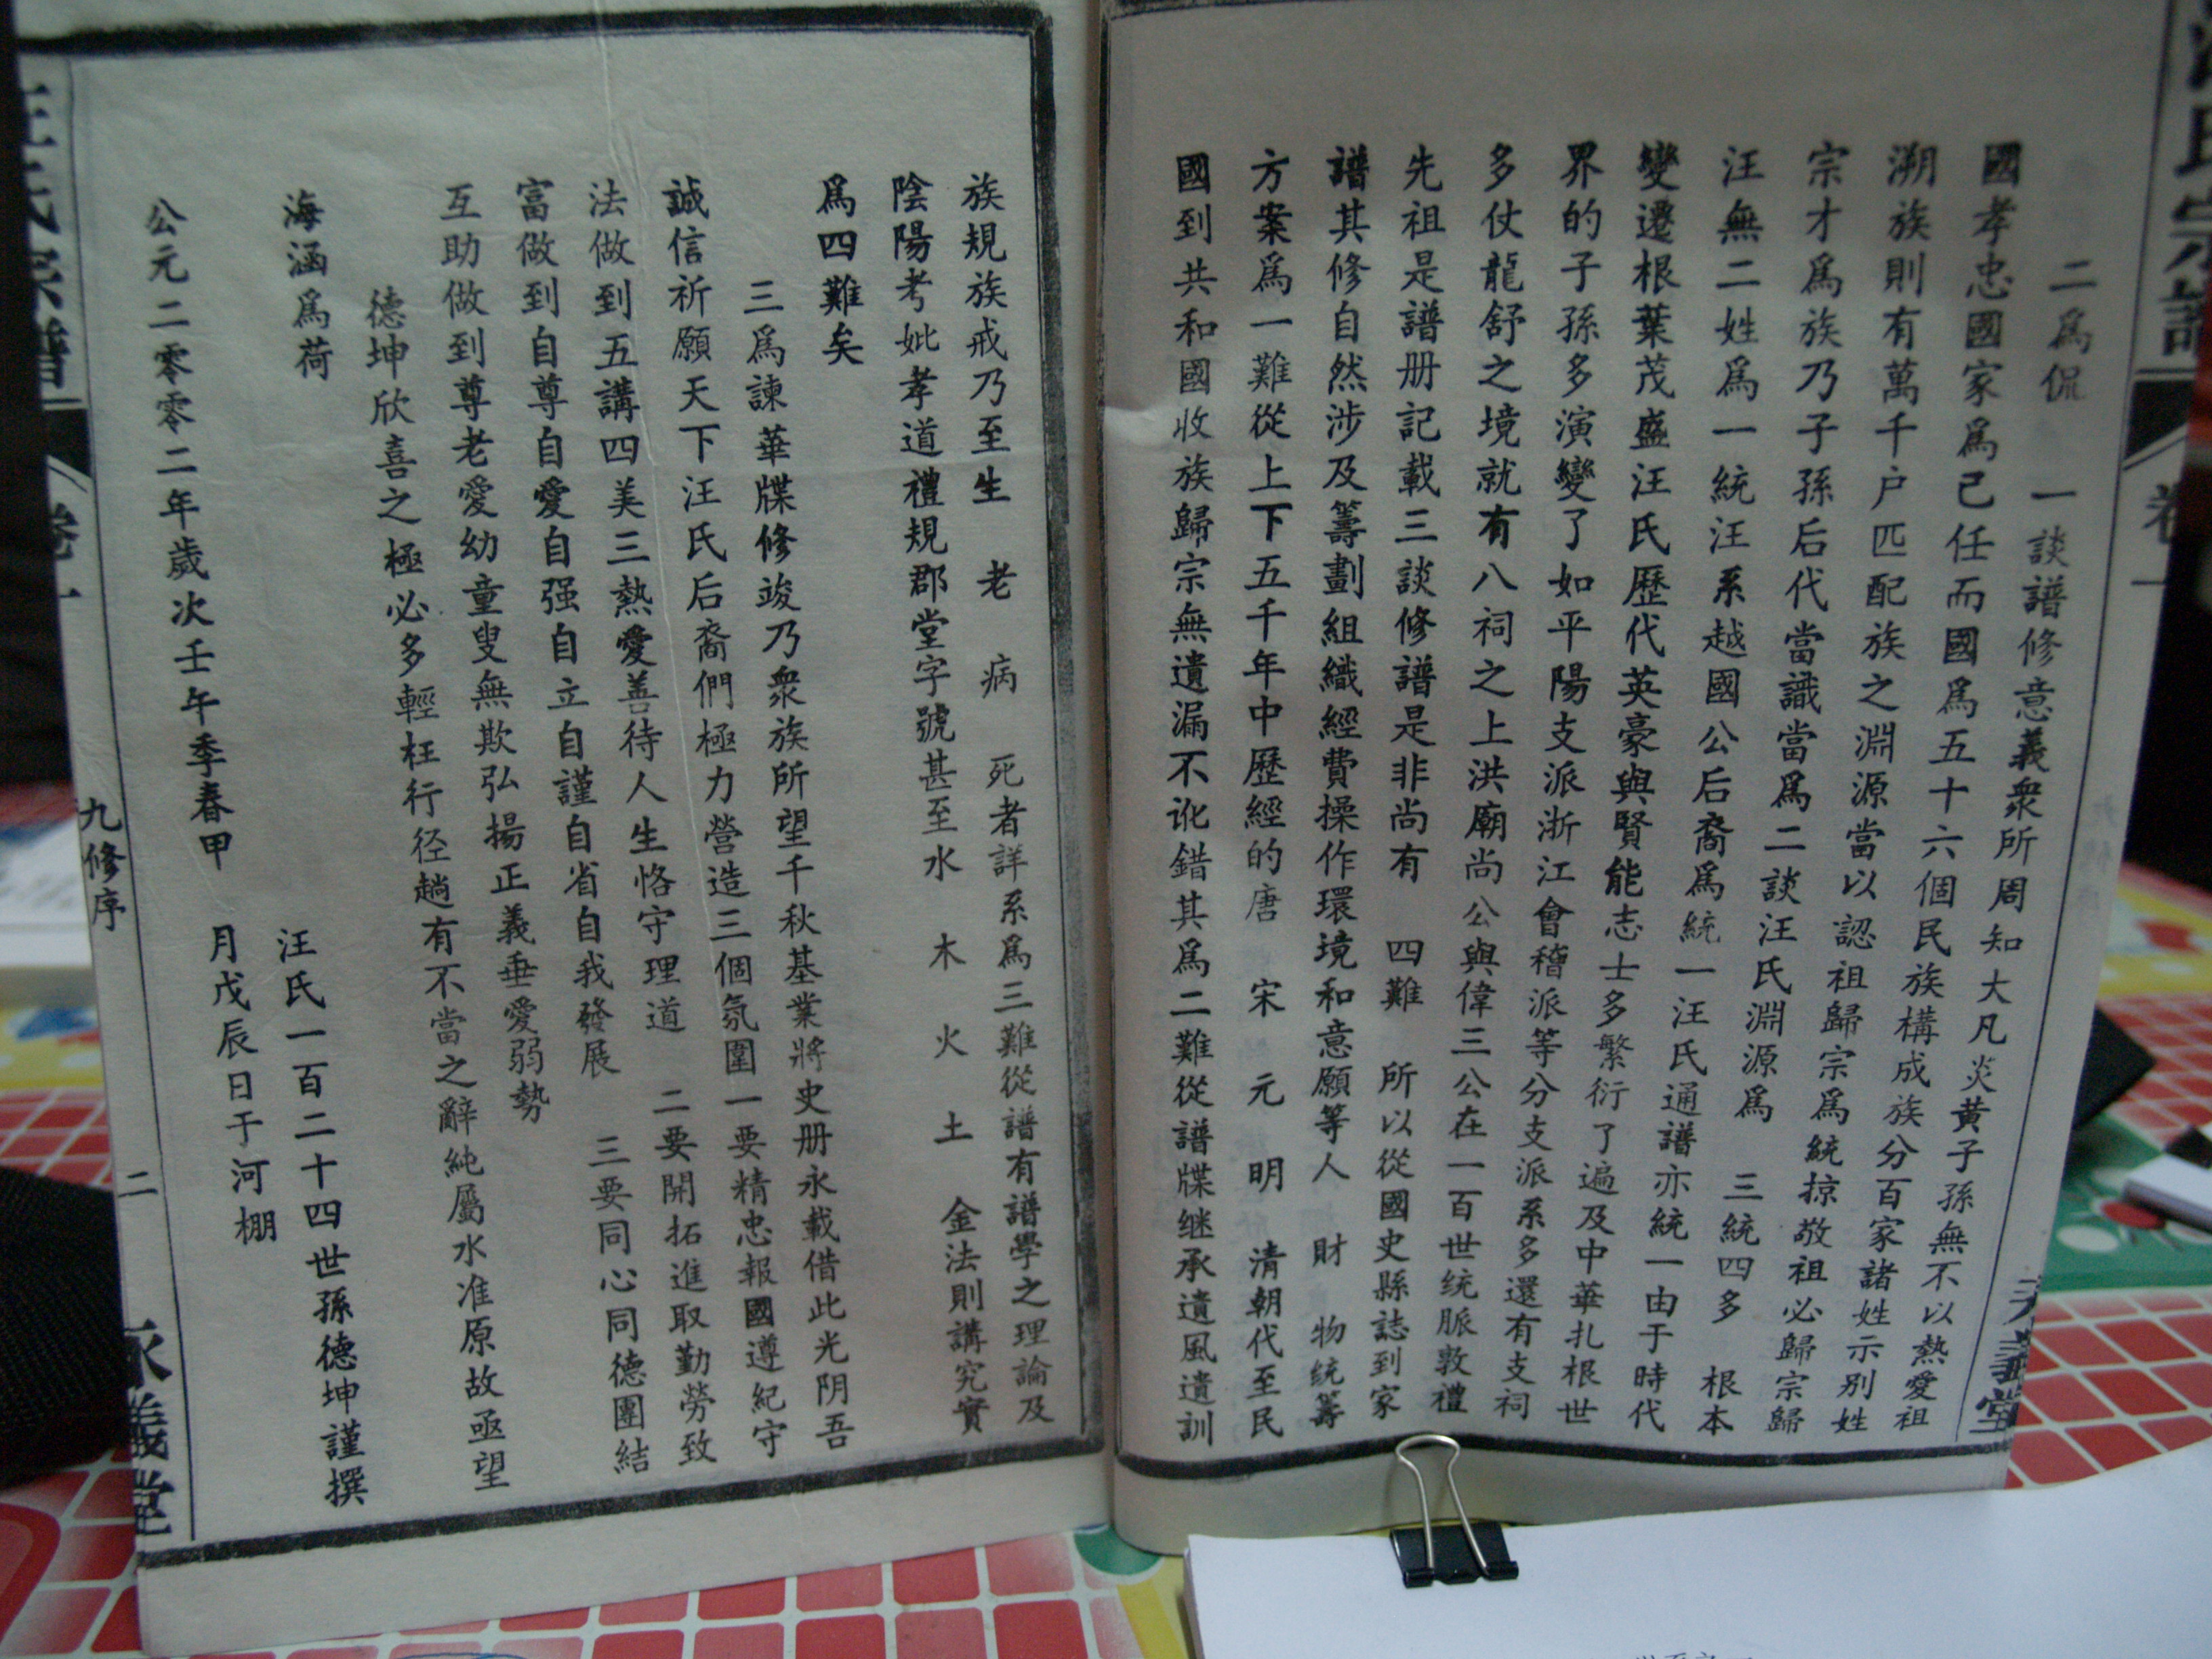 汪氏宗譜
卷一
二爲侃 一談譜修意義衆所周知大凡炎黄子孫無不以熱愛祖
國孝忠國家爲己任而國爲五十六個民族構成族分百家諸姓示別姓
溯族則有萬千户匹配族之淵源當以認祖歸宗爲統掠敬祖必歸宗歸
宗才爲族乃子孫后代當識當爲二談汪氏淵源爲 三統四多 根本
汪無二姓爲一統汪系越國公后裔爲統一汪氏通譜亦統一由于時代
變遷根葉茂盛汪氏歷代英豪與賢能志士多繁衍了遍及中華扎根世
界的子孫多演變了如平陽支派浙江會稽派等分支派系多還有支祠
多仗龍舒之境就有八祠之上洪廟尚公與偉三公在一百世统脈敦禮
先祖是譜册記載三談修譜是非尚有 四難 所以從國史縣誌到家
譜其修自然涉及籌劃組織經費操作環境和意願等人 財 物统籌
方案爲一難從上下五千年中歷經的唐 宋 元 明 清朝代至民
國到共和國收族歸宗無遺漏不訛錯其爲二難從譜牒继承遺風遺訓
族規族戒乃至生 老 病 死者詳系爲三難從譜有譜學之理論及
陰陽考妣孝道禮規郡堂字號甚至水 木 火 土 金法則講究實
爲四難矣
三爲諫華牒修竣乃衆族所望千秋基業將史册永載借此光阴吾
誠信祈願天下汪氏后裔們極力營造三個氛圍一要精忠報國遵紀守
法做到五講四美三熱愛善待人生恪守理道 二要開拓進取勤勞致
富做到自尊自愛自强自立自謹自省自我發展 三要同心同德團結
互助做到尊老愛幼童叟無欺弘揚正義垂愛弱勢
德坤欣喜之極必多輕枉行径趟有不當之辭純屬水准原故亟望
海涵爲荷
汪氏一百二十四世孫德坤謹撰
公元二零零二年歲次壬午季春甲 月戊辰日于河棚
汪氏宗譜
卷一
九修序
二
永義堂